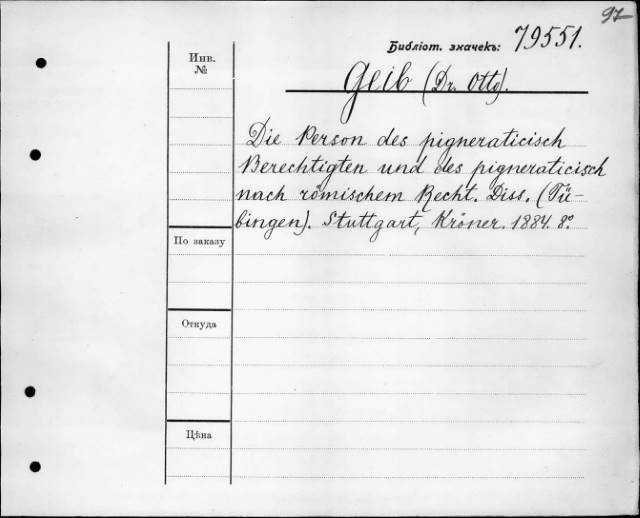 97
Библіот. значекъ: 79551.
Инв.
№
Geib (Dr. Otto).
Die Person des pigneraticisch
Berechtigten und des pigneraticisch
nach römischem Recht. Diss. (Tü-
bingen). Stuttgart, Kröner. 1884. 8º
По заказу
Откуда
Цѣна